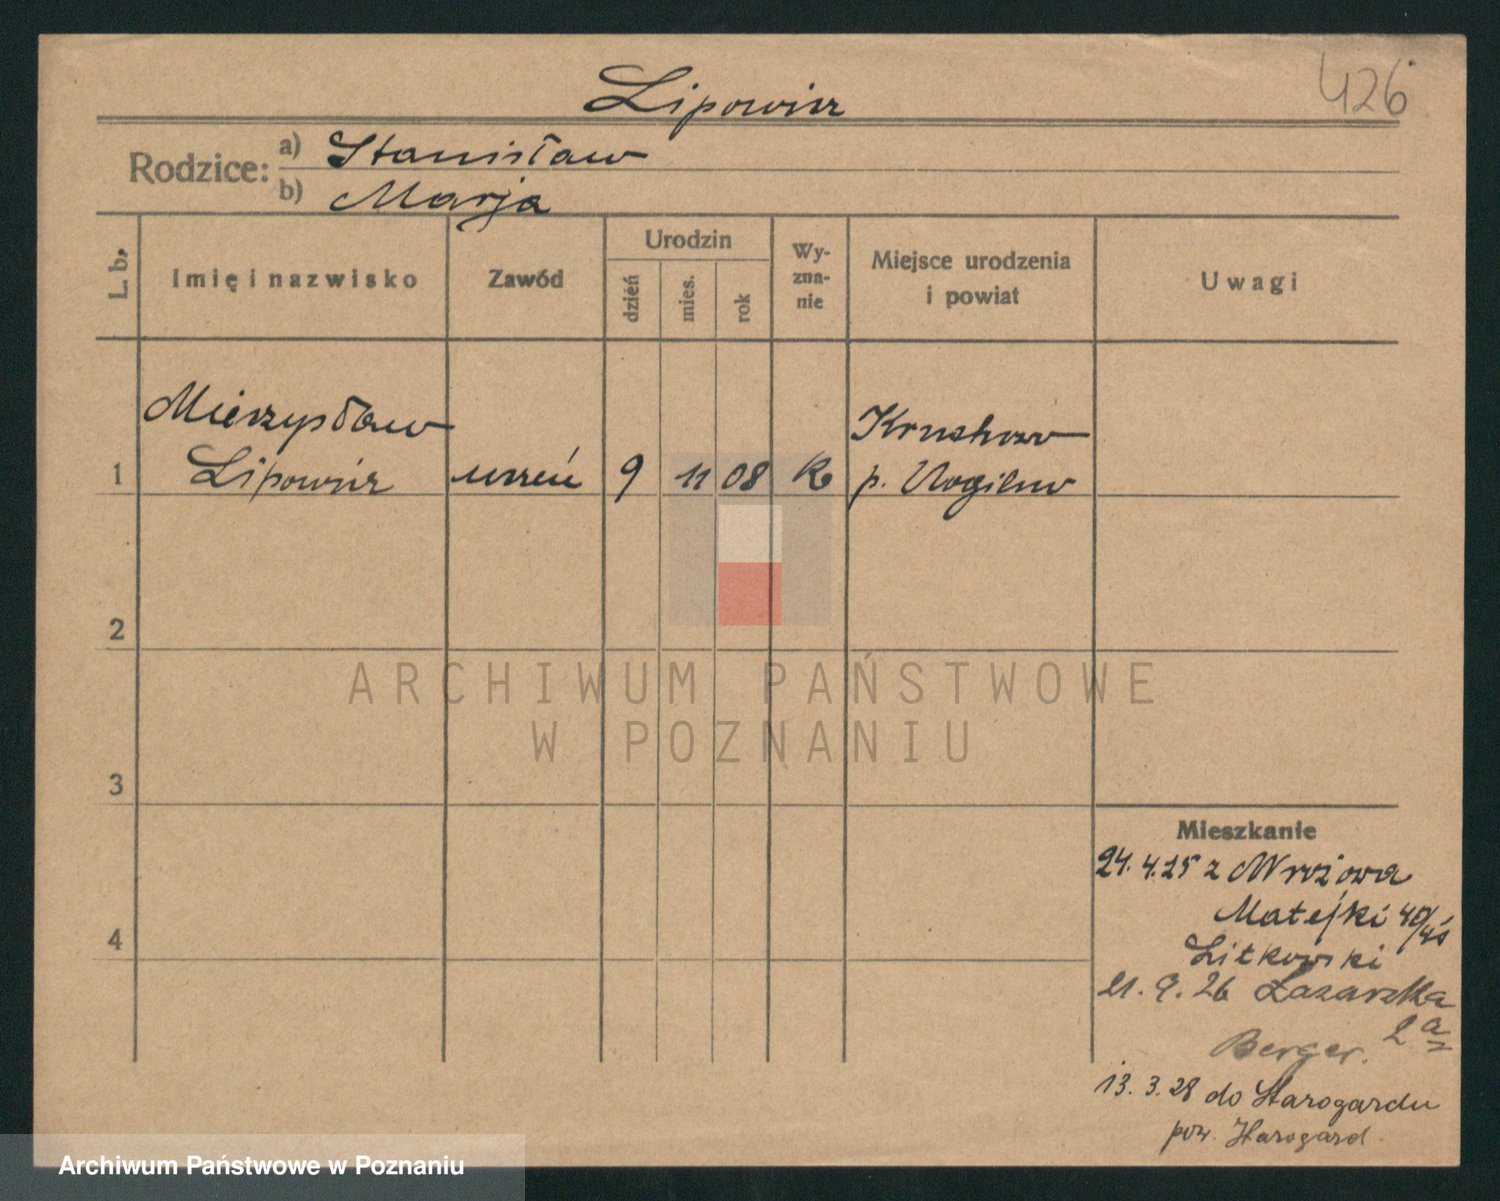 426
Lipowicz
Rodzice: a) Stanisław
b) Marja
L. b. Imię i nazwisko Zawód Urodzin dzień mies. rok Wyznanie Miejsce urodzenia i powiat Uwagi
Mieczysław Kruchowo
1 Lipowicz uczeń 9 11 08 K p. Mogilno
2
ARCHIWUM PAŃSTWOWE
W POZNANIU
3
Mieszkanie
24. 4. 25 z
Matejki
4
Litkowski
21. 9. 26 Łazarska
2a
Berger.
13. 3. 28 do Starogardu
pow. Starogard
Archiwum Państwowe w Poznaniu